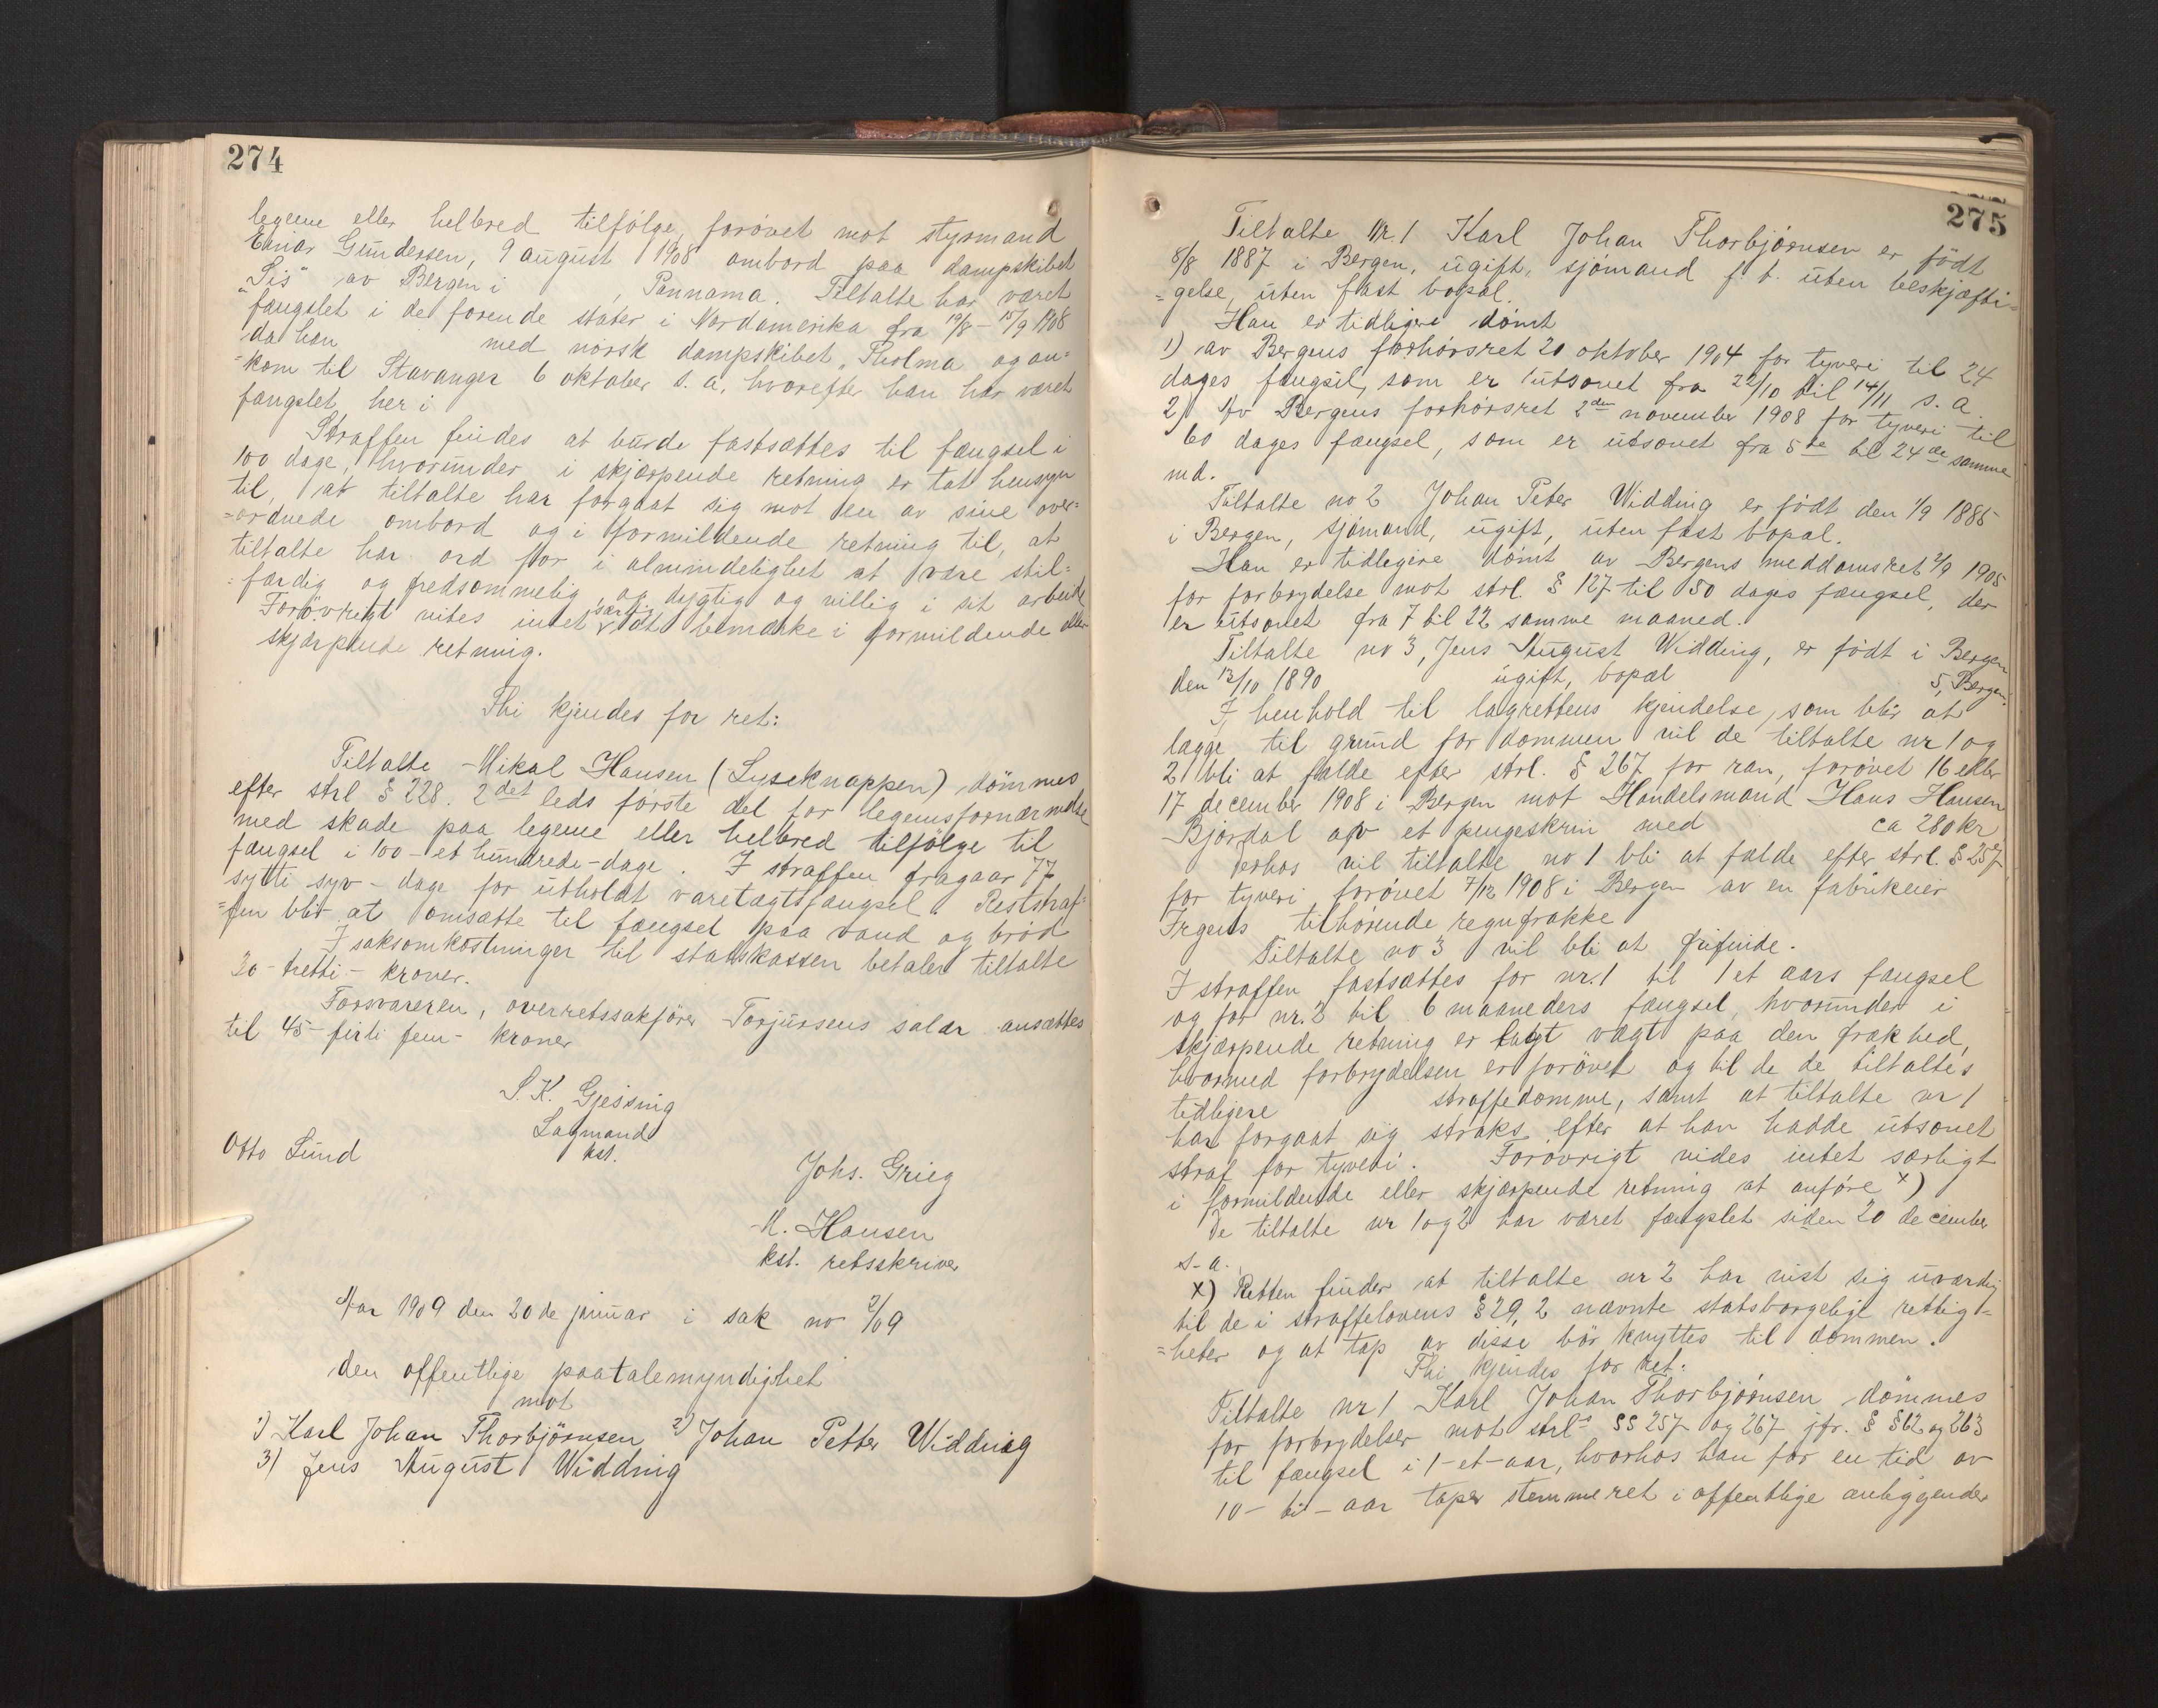 274
legeme eller helbred tilfölge, forövet mot styrmand
Einar Gundersen, 9 august 1908 ombord paa dampskibet
"Sis" av Bergen i , Pannama. Tiltalte har været
fængslet i de forende stater i Nordamerika fra 19/8 - 15/9 1908
da han med norsk dampskibet "Tholma" og an=
=kom til Stavanger 6 oktober s. a. hvorefter han har været
fængslet her i
Straffen findes at burde fastsættes til fængsel i
100 dage, hvorunder i skjærpende retning er tat hensyn
til, at tiltalte har forgaat sig mot en av sine over=
=ordnede ombord og i formildende retning til, at
tiltalte har ord for i almindelighet at være stil=
=færdig og fredsommelig og dygtig og villig i sit arbeide
Forövrigt vites intet særlig at bemærke i formildende eller
skjærpende retning.
Thi kjendes for ret:
Tiltalte Mikal Hansen (Lyseknappen) dömmes
efter strl § 228. 2det leds förste del for legemsfornærmelse
med skade paa legeme eller helbred tilfölge til
fængsel i 100 - et hundrede - dage. I straffen fragaar 77
sytti syv - dage for utholdt varetægtsfængsel. Reststraf=
=fen blir at omsætte til fængsel paa vand og bröd
I saksomkostninger til statskassen betaler tiltalte
30 - tretti - kroner.
Forsvareren, overretssakförer Torjusens salær ansættes
til 45 - firti fem - kroner
S. K. Gjessing
Lagmand
kst.
Otto Lund
Johs. Grieg
M. Hansen
kst. retsskriver
Aar 1909 den 20de januar i sak no 2/09
den offentlige paatalemyndighet
mot
1) Karl Johan Thorbjörnsen 2) Johan Petter Widding
3) Jens August Widding
275
Tiltalte Nr. 1 Karl Johan Thorbjörnsen er födt
8/8 1887 i Bergen, ugift, sjömand f. t. uten beskjæfti=
=gelse, uten fast bopæl.
Han er tidligere dömt
1) av Bergens forhörsret 20 oktober 1904 for tyveri til 24
dages fængsel, som er utsonet fra 22/10 til 14/11 s. a.
2) Av Bergens forhörsret 2den november 1908 for tyveri til
60 dages fængsel, som er utsonet fra 5te til 24de samme
md.
Tiltalte no 2 Johan Peter Widding er födt den 1/9 1885
i Bergen, sjömand, ugift, uten fast bopæl.
Han er tidligere dömt av Bergens meddomsret 2/9 1905
for forbrydelse mot strl. § 127 til 50 dages fængsel, der
er utsonet fra 7 til 22 samme maaned.
Tiltalte no 3, Jens August Widding, er födt i Bergen
den 13/10 1890 ugift, bopæl 5, Bergen.
I henhold til lagrettens kjendelse, som blir at
lægge til grund for dommen vil de tiltalte nr 1 og
2 bli at fælde efter strl. § 267 for ran, forövet 16 eller
17 december 1908 i Bergen mot Handelsmand Hans Hansen
Björdal av et pengeskrin med ca 280 kr
Derhos vil tiltalte no 1 bli at fælde efter strl. § 257
for tyveri forövet 7/12 1908 i Bergen av en fabrikeier
Irgens tilhörende regnfrakke
Tiltalte no 3 vil bli at frifinde.
I straffen fastsættes for nr. 1 til 1 et aars fængsel
og for nr. 2 til 6 maaneders fængsel, hvorunder i
skjærpende retning er lagt vægt paa den frækhed,
hvormed forbrydelsen er forövet og til de de tiltaltes
tidligere straffedomme, samt at tiltalte nr 1
har forgaat sig straks efter at han hadde utsonet
straf for tyveri. Forövrigt vides intet særligt
i formildende eller skjærpende retning at anföre x)
De tiltalte nr 1 og 2 har været fængslet siden 20 december
s. a.
x) Retten finder at tiltalte nr 2 har vist sig uværdig
til de i straffelovens § 29, 2 nævnte statsborgelige rettig=
=heter og at tap av disse bör knyttes til dommen.
Thi kjendes for ret:
Tiltalte nr 1 Karl Johan Thorbjörnsen dömmes
for forbrydelser mot strl's §§ 257 og 267 jfr. § §62 og 263
til fængsel i 1 - et - aar, hvorhos han for en tid av
10 - ti - aar taper stemmeret i offentlige anliggender